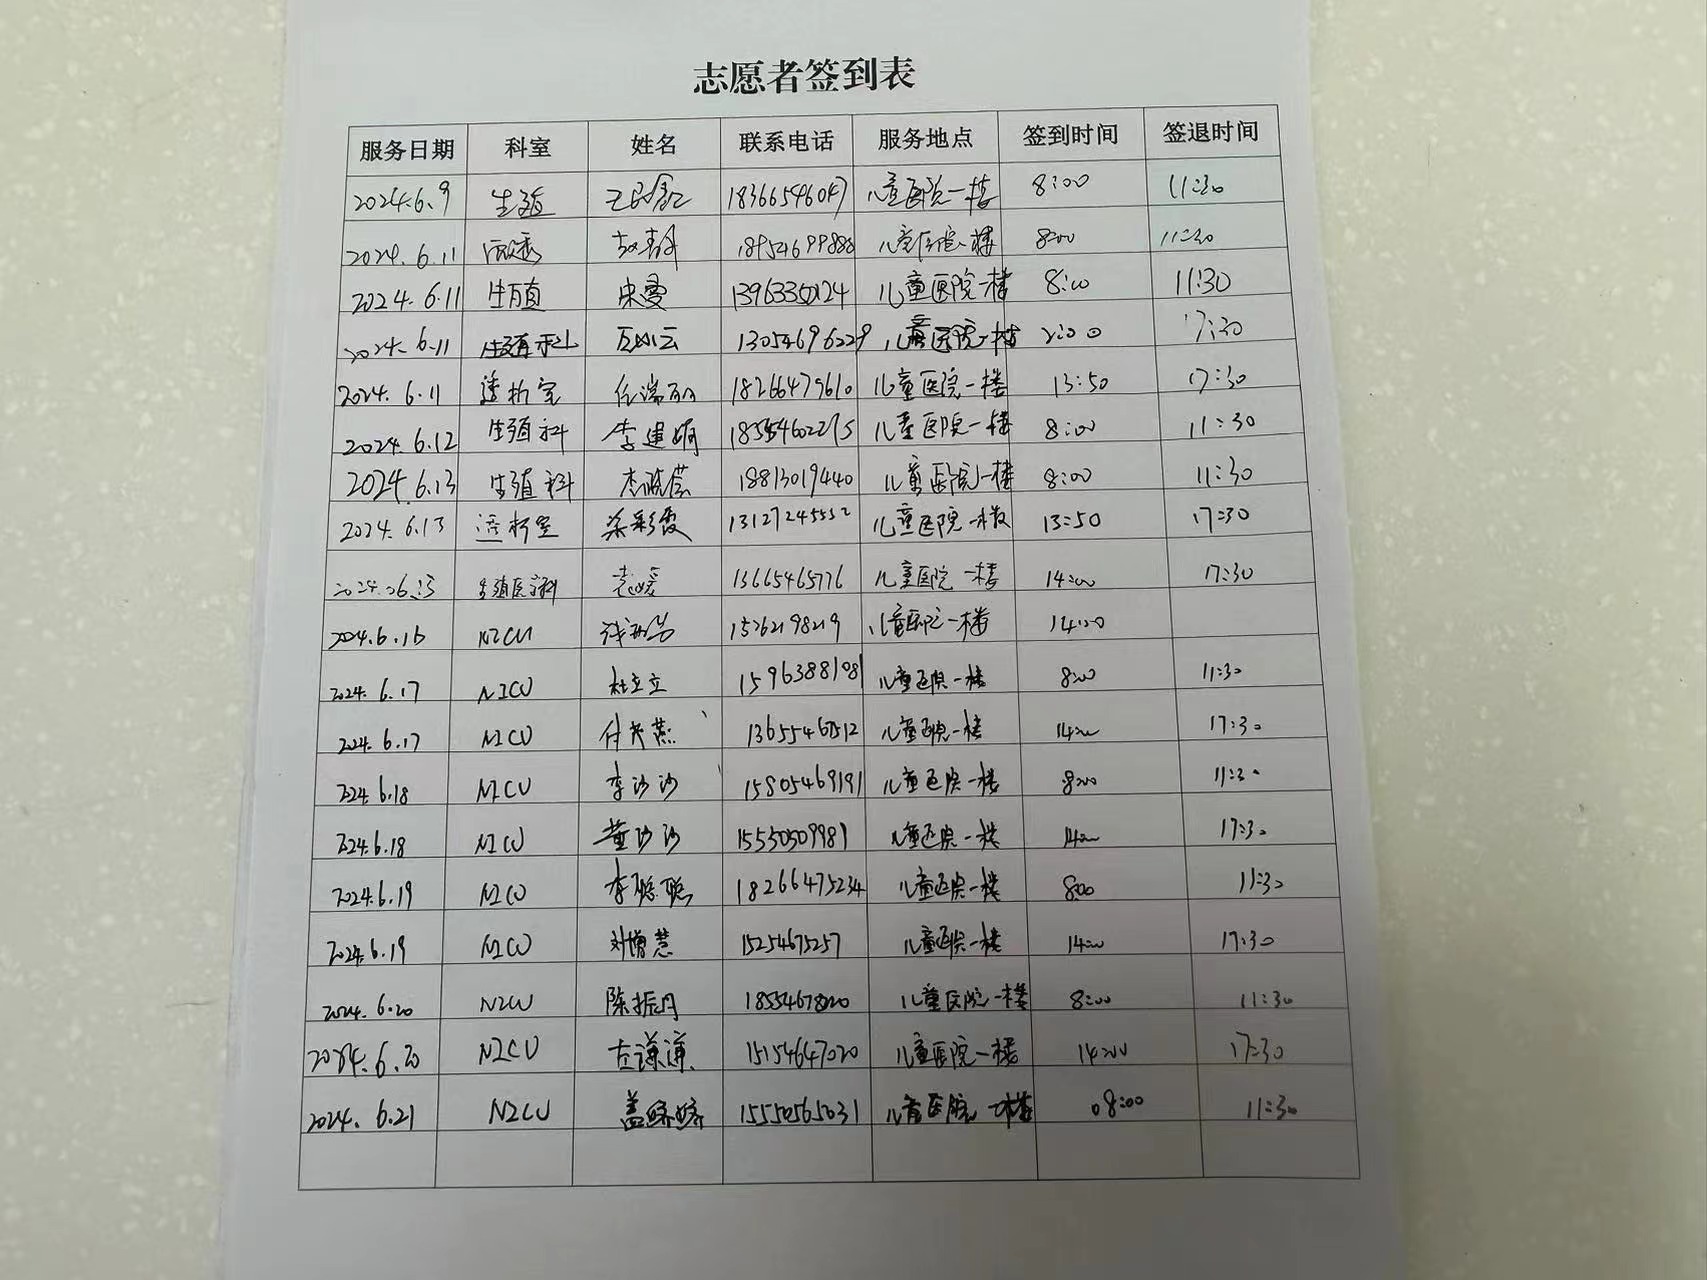 志愿者签到表
服务日期 科室 姓名 联系电话 服务地点 签到时间 签退时间
2024.6.9 生殖 18366546047 儿童医院一楼 8:00 11:30
2024.6.11 18954699888 儿童医院一楼 8:00 11:30
2024.6.11 生殖 宋雯 儿童医院一楼 8:00 11:30
2024.6.11 生殖科 13054696229 儿童医院一楼 2:00 17:30
2024.6.11 透析室 任瑞丽 18266479610 儿童医院一楼 13:50 17:30
2024.6.12 生殖科 李建娟 18554602275 儿童医院一楼 8:00 11:30
2024.6.13 生殖科 18813019440 儿童医院一楼 8:00 11:30
2024.6.13 透析室 13127245552 儿童医院一楼 13:50 17:30
生殖医学科 13665465776 儿童医院一楼 14:00 17:30
2024.6.16 NICU 15262198219 儿童医院一楼 14:00
2024.6.17 NICU 杜立立 15963888081 儿童医院一楼 8:00 11:30
2024.6.17 NICU 儿童医院一楼 14:00 17:30
2024.6.18 NICU 李沙沙 15805469191 儿童医院一楼 8:00 11:30
2024.6.18 NICU 董沙沙 15550509981 儿童医院一楼 14:00 17:30
2024.6.19 NICU 李聪聪 18266475234 儿童医院一楼 8:00 11:30
2024.6.19 NICU 刘增慧 15254675257 儿童医院一楼 14:00 17:30
2024.6.20 NICU 陈振月 儿童医院一楼 8:00 11:30
2024.6.20 NICU 古谦谦 15154647020 儿童医院一楼 14:00 17:30
2024.6.21 NICU 盖娇娇 15550565031 儿童医院一楼 08:00 11:30